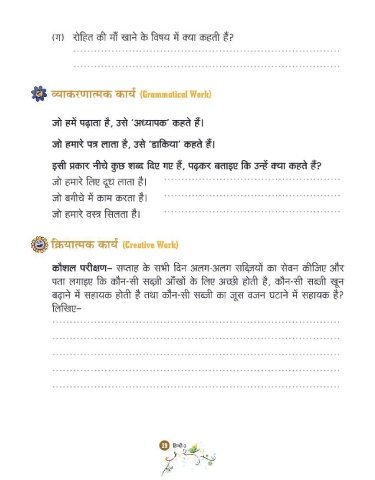 (ग) रोहित की माँ खाने के विषय में क्या कहती हैं?
व्याकरणात्मक कार्य (Grammatical Work)
जो हमें पढ़ाता है, उसे 'अध्यापक' कहते हैं।
जो हमारे पत्र लाता है, उसे 'डाकिया' कहते हैं।
इसी प्रकार नीचे कुछ शब्द दिए गए हैं, पढ़कर बताइए कि उन्हें क्या कहते हैं?
जो हमारे लिए दूध लाता है।
जो बगीचे में काम करता है।
जो हमारे वस्त्र सिलता है।
क्रियात्मक कार्य (Creative Work)
कौशल परीक्षण– सप्ताह के सभी दिन अलग-अलग सब्ज़ियों का सेवन कीजिए और
पता लगाइए कि कौन-सी सब्ज़ी आँखों के लिए अच्छी होती है, कौन-सी सब्ज़ी खून
बढ़ाने में सहायक होती है तथा कौन-सी सब्ज़ी का जूस वजन घटाने में सहायक है?
लिखिए–
29 हिन्दी-3